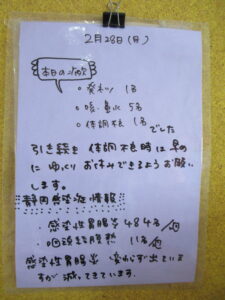 2月28日(月)
本日の病欠
・発熱 1名
・咳・鼻水 5名
・体調不良 1名
でした
引き続き 体調不良時は 早め
に ゆっくり お休みできるよう お願い
します。
静岡感染症情報
・感染性胃腸炎 484名/週
・咽頭結膜熱 11名/週
感染性胃腸炎 変わらず出ていま
すが 減ってきています。